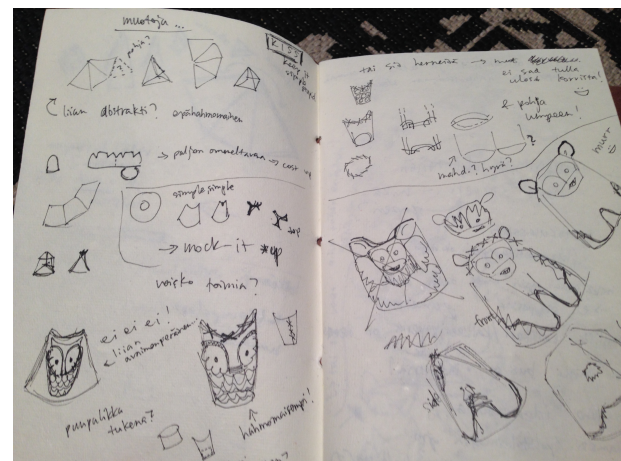 muotoja ...
pohja?
KISS
keep it
simple
stupid
liian abstrakti? epähahmomainen
→ paljon ommeltavaa → cost up
simple simple
top
→ mock-it up
voisko toimia?
ei ei ei!
liian
avaimenperämäinen
puupalikka
tukena?
hahmomaisempi!
tai siis herneisä → mut
ei saa tulla
ulos korista!
& pohja
umpeen!
?
mahd.? hyvä?
murr
front
side